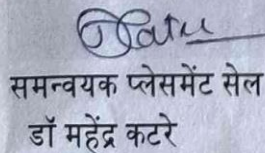 समन्वयक प्लेसमेंट सेल
डॉ महेंद्र कटरे